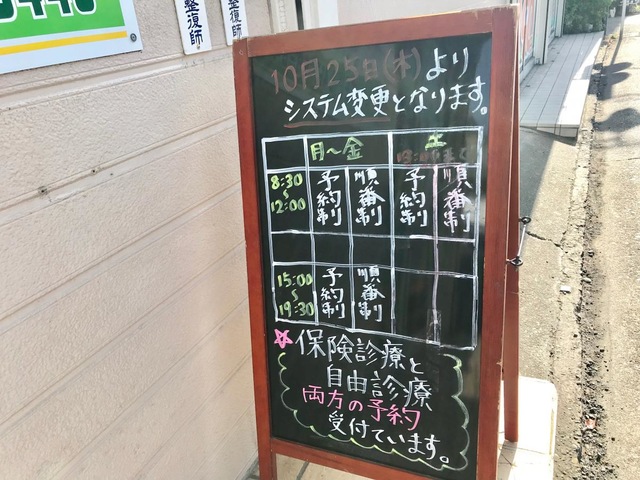 整復師
整復師
10月25日(木)より
システム変更となります。
月～金
土
8:30
～
12:00
予約制
順番制
予約制
順番制
15:00
～
19:30
予約制
順番制
☆保険診療と
自由診療
両方の予約
受付ています。